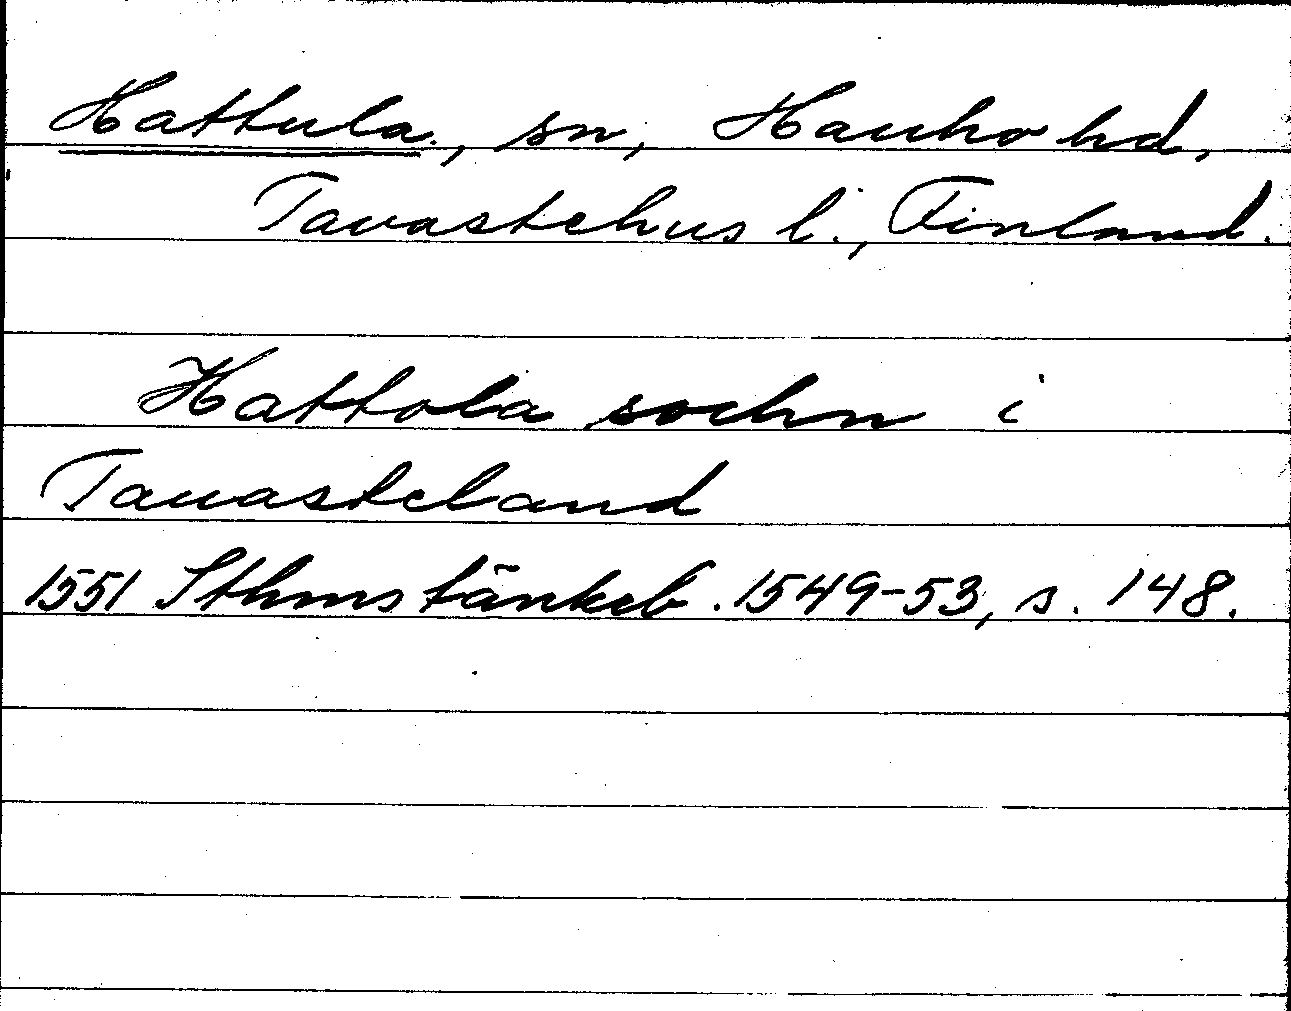 Hattula, sn, Hauho hd,
Tavastehus l., Finland.
Hattola sochn i
Tauasteland
1551 Sthms tänkeb. 1549-53, s. 148.